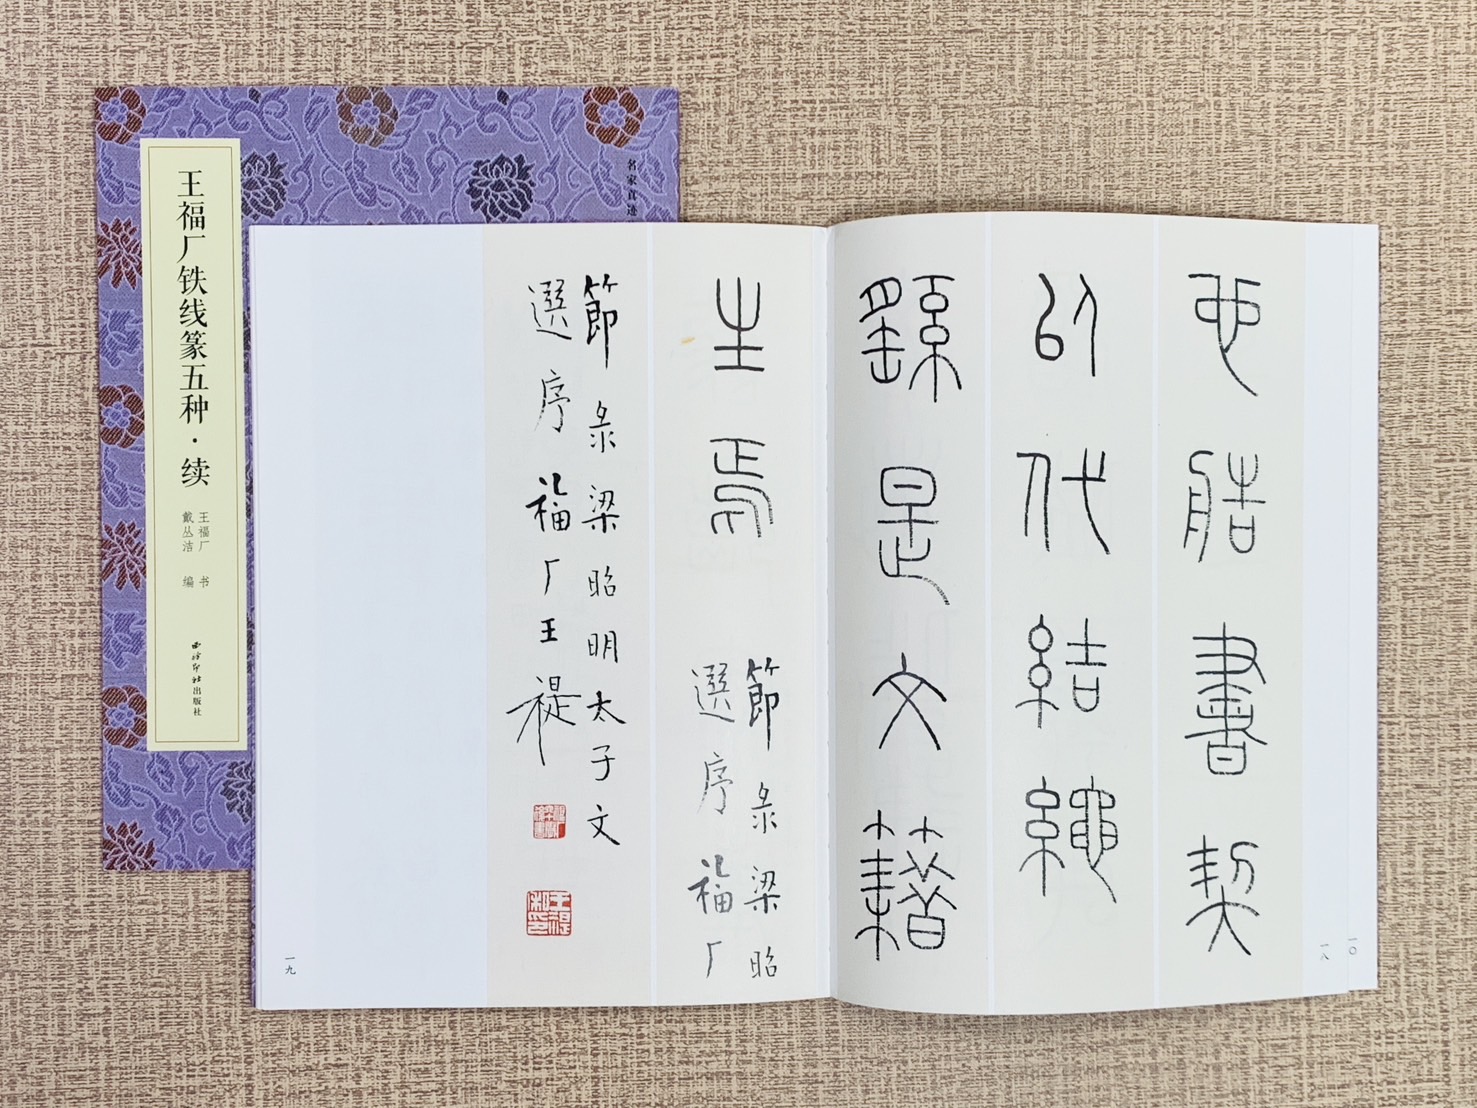 王福厂铁线篆五种·续
王福厂 书
戴丛洁 编
西泠印社出版社
名家真迹
也艁書契
以代結繩
繇是文籍
生焉
節录梁昭
選序福厂
節录梁昭明太子文
選序福厂王禔
王禔私印
一〇
一八
一九